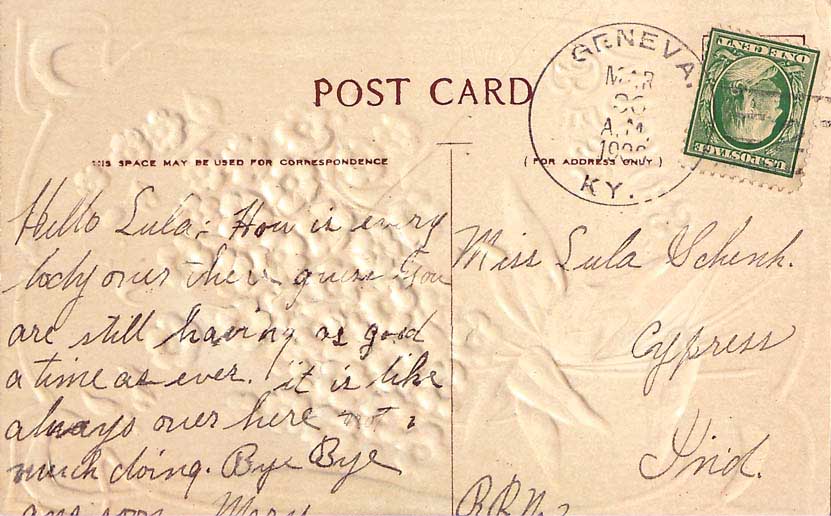 POST CARD
THIS SPACE MAY BE USED FOR CORRESPONDENCE
(FOR ADDRESS ONLY)
GENEVA.
MAR
A.M.
KY.
ONE CENT
U.S. POSTAGE
Hello Lula; How is every
body over there guess you
are still having as good
a time as ever. it is like
always over here not
much doing. Bye Bye
Mary
Miss Lula Schenk.
Cypress
Ind.